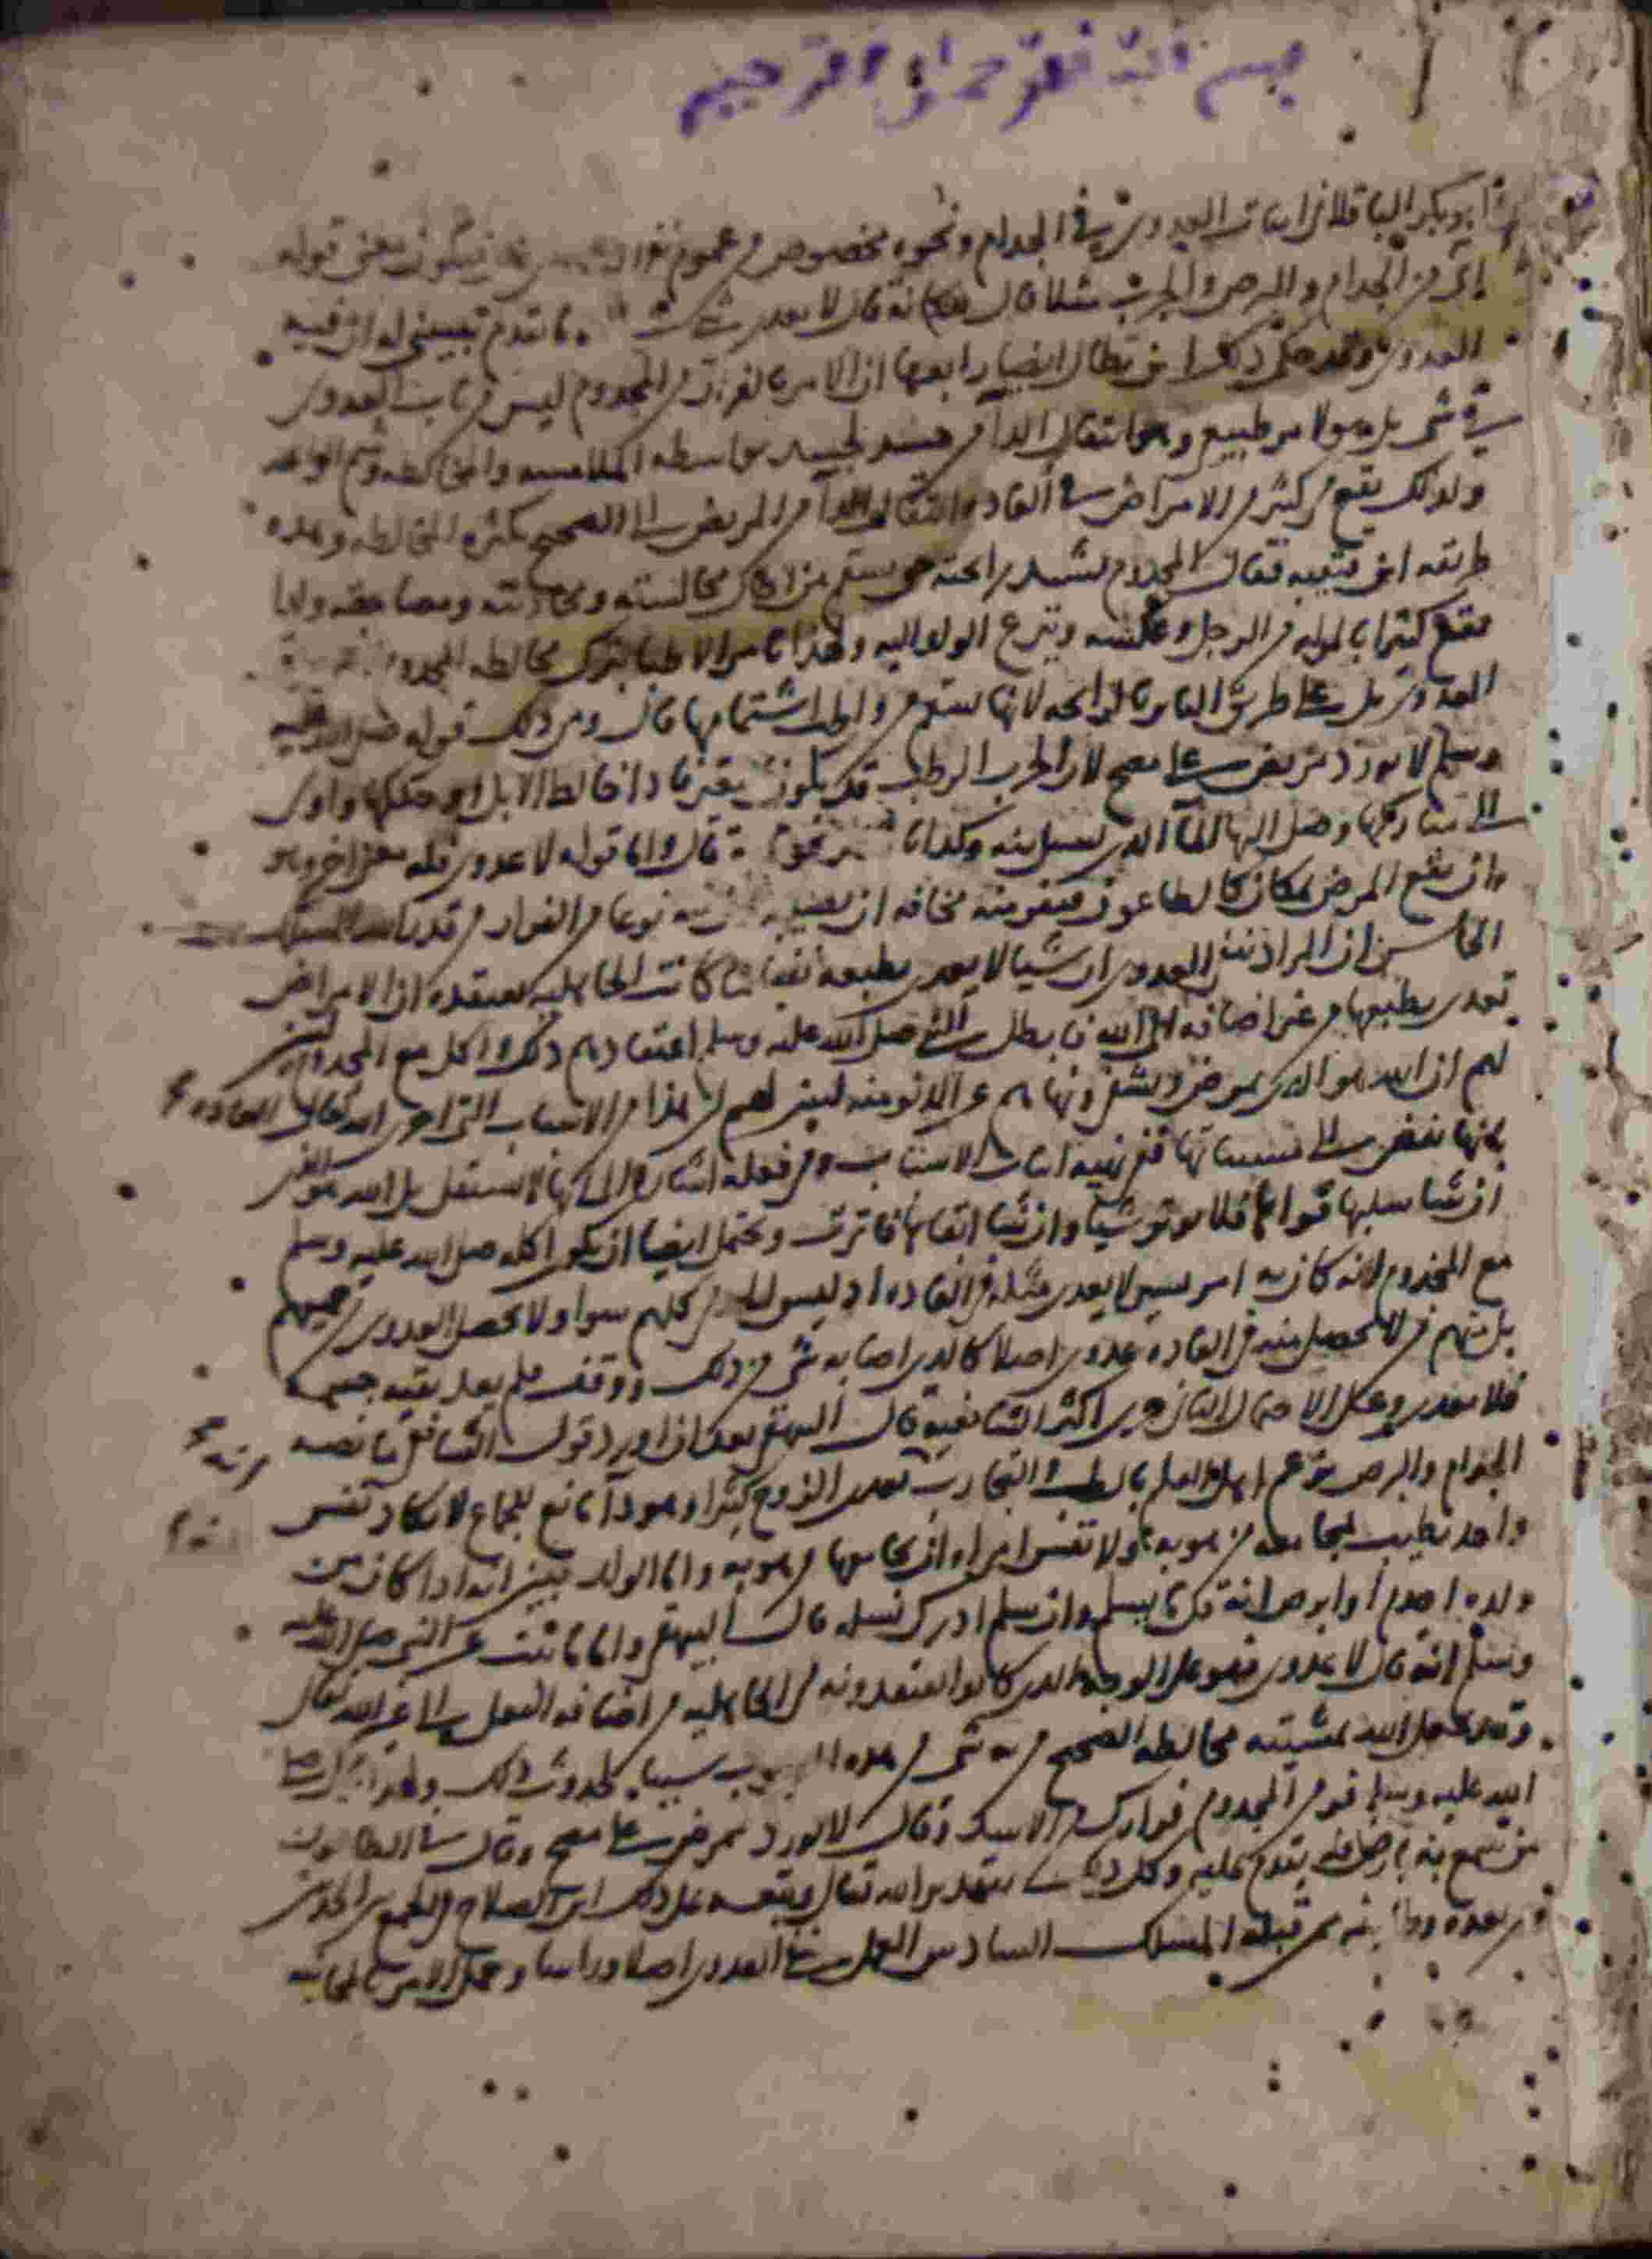 بسم الله الرحمن الرحيم
ابو بكر الباقلاني اثبات العدوى في الجدام ونحوه مخصوص من عموم نفي العدوى فيكون معنى قوله
اي من الجدام والبرص والجرب مثلا قال فكانه قال لا يعدي شي شيا ما تقدم تبييني له ان فيه
العدوى وقد حكى ذلك ابن بطال ايضا رابعها ان الامر بالفرار من المجدوم ليس من باب العدوى
في شي بل هو لامر طبيعي وهو انتقال الدا من جسد لجسد بواسطه الملامسه والمخالطه وشم الرايحه
ولذلك يقع في كثير من الامراض في العاده انتقال الدا من المريض الى الصحيح بكثره المخالطه وهذه
طريقه ابن قتيبه فقال المجدوم تشتد رايحته حتى يسقم من اطال مجالسته ومحادثته ومضاجعته وكذا
يقع كثيرا بالمراه من الرجل وعكسه وينزع الولد اليه ولهذا يامر الاطبا بترك مخالطه المجدوم
العدوى بل على طريق التاثر بالرايحه لانها تسقم من واظب اشتمامها قال ومن ذلك قوله صلى الله عليه
وسلم لا يورد ممرض على مصح لان الجرب الرطب قد يكون بالبعير فاذا خالط الابل او حككها واوى
الى مباركها وصل اليها بالما الذي يسيل منه وكذا بالنظر نحو ما به قال واما قوله لا عدوى فله معنى اخر وهو
ان يقع المرض بمكان كالطاعون فيفر منه مخافه ان يصيبه لان فيه نوعا من الفرار من قدر الله المسلك
الخامس ان المراد بنفي العدوى ان شيا لا يعدي بطبعه نفيا لما كانت الجاهليه تعتقده ان الامراض
تعدي بطبعها من غير اضافه الى الله فابطل النبي صلى الله عليه وسلم اعتقادهم ذلك واكل مع المجدوم ليبين
لهم ان الله هو الذي يمرض ويشفي ونهاهم عن الدنو منه ليبين لهم ان هذا من الاسباب التي اجرى الله تعالى العاده
بانها تفضي الى مسبباتها ففي نهيه اثبات الاسباب وفي فعله اشاره الى انها لا تستقل بل الله هو الذي
ان شا سلبها قواها فلا توثر شيا وان شا ابقاها فاثرت ويحتمل ايضا ان يكون اكله صلى الله عليه وسلم
مع المجدوم لانه كان به امر يسير لا يعدي مثله في العاده اذ ليس الجدمى كلهم سوا ولا تحصل العدوى من جميعهم
بل منهم من لا يحصل منه في العاده عدوى اصلا كالذي اصابه شي من ذلك ووقف فلم يعد بقيه جسمه
فلا يعدي وعلى الاحتمال الثاني جرى اكثر الشافعيه قال البيهقي بعد ان اورد قول الشافعي ما نصه
الجذام والبرص يزعم اهل العلم بالطب والتجارب انه يعدي الزوج كثيرا وهو دا مانع للجماع لا تكاد نفس
واحد تطيب بمجامعه من هو به ولا نفس امراه ان يجامعها من هو به واما الولد فبين انه اذا كان من
ولده اجذم او ابرص انه قل ما يسلم وان سلم ادرك نسله قال البيهقي واما ما ثبت عن النبي صلى الله عليه
وسلم انه قال لا عدوى فهو على الوجه الذي كانوا يعتقدونه في الجاهليه من اضافه الفعل الى غير الله تعالى
وقد يجعل الله بمشيته مخالطه الصحيح من به شي من هذه العيوب سببا لحدوث ذلك ولهذا قال صلى
الله عليه وسلم فر من المجدوم فرارك من الاسد وقال لا يورد ممرض على مصح وقال في الطاعون
من سمع به بارض فلا يقدم عليه وكل ذلك بتقدير الله تعالى وتبعه على ذلك ابن الصلاح في الجمع بين الحديثين
ومن بعده وطايفه ممن قبله المسلك السادس العمل بنفي العدوى اصلا وراسا وحمل الامر بالمجانبه